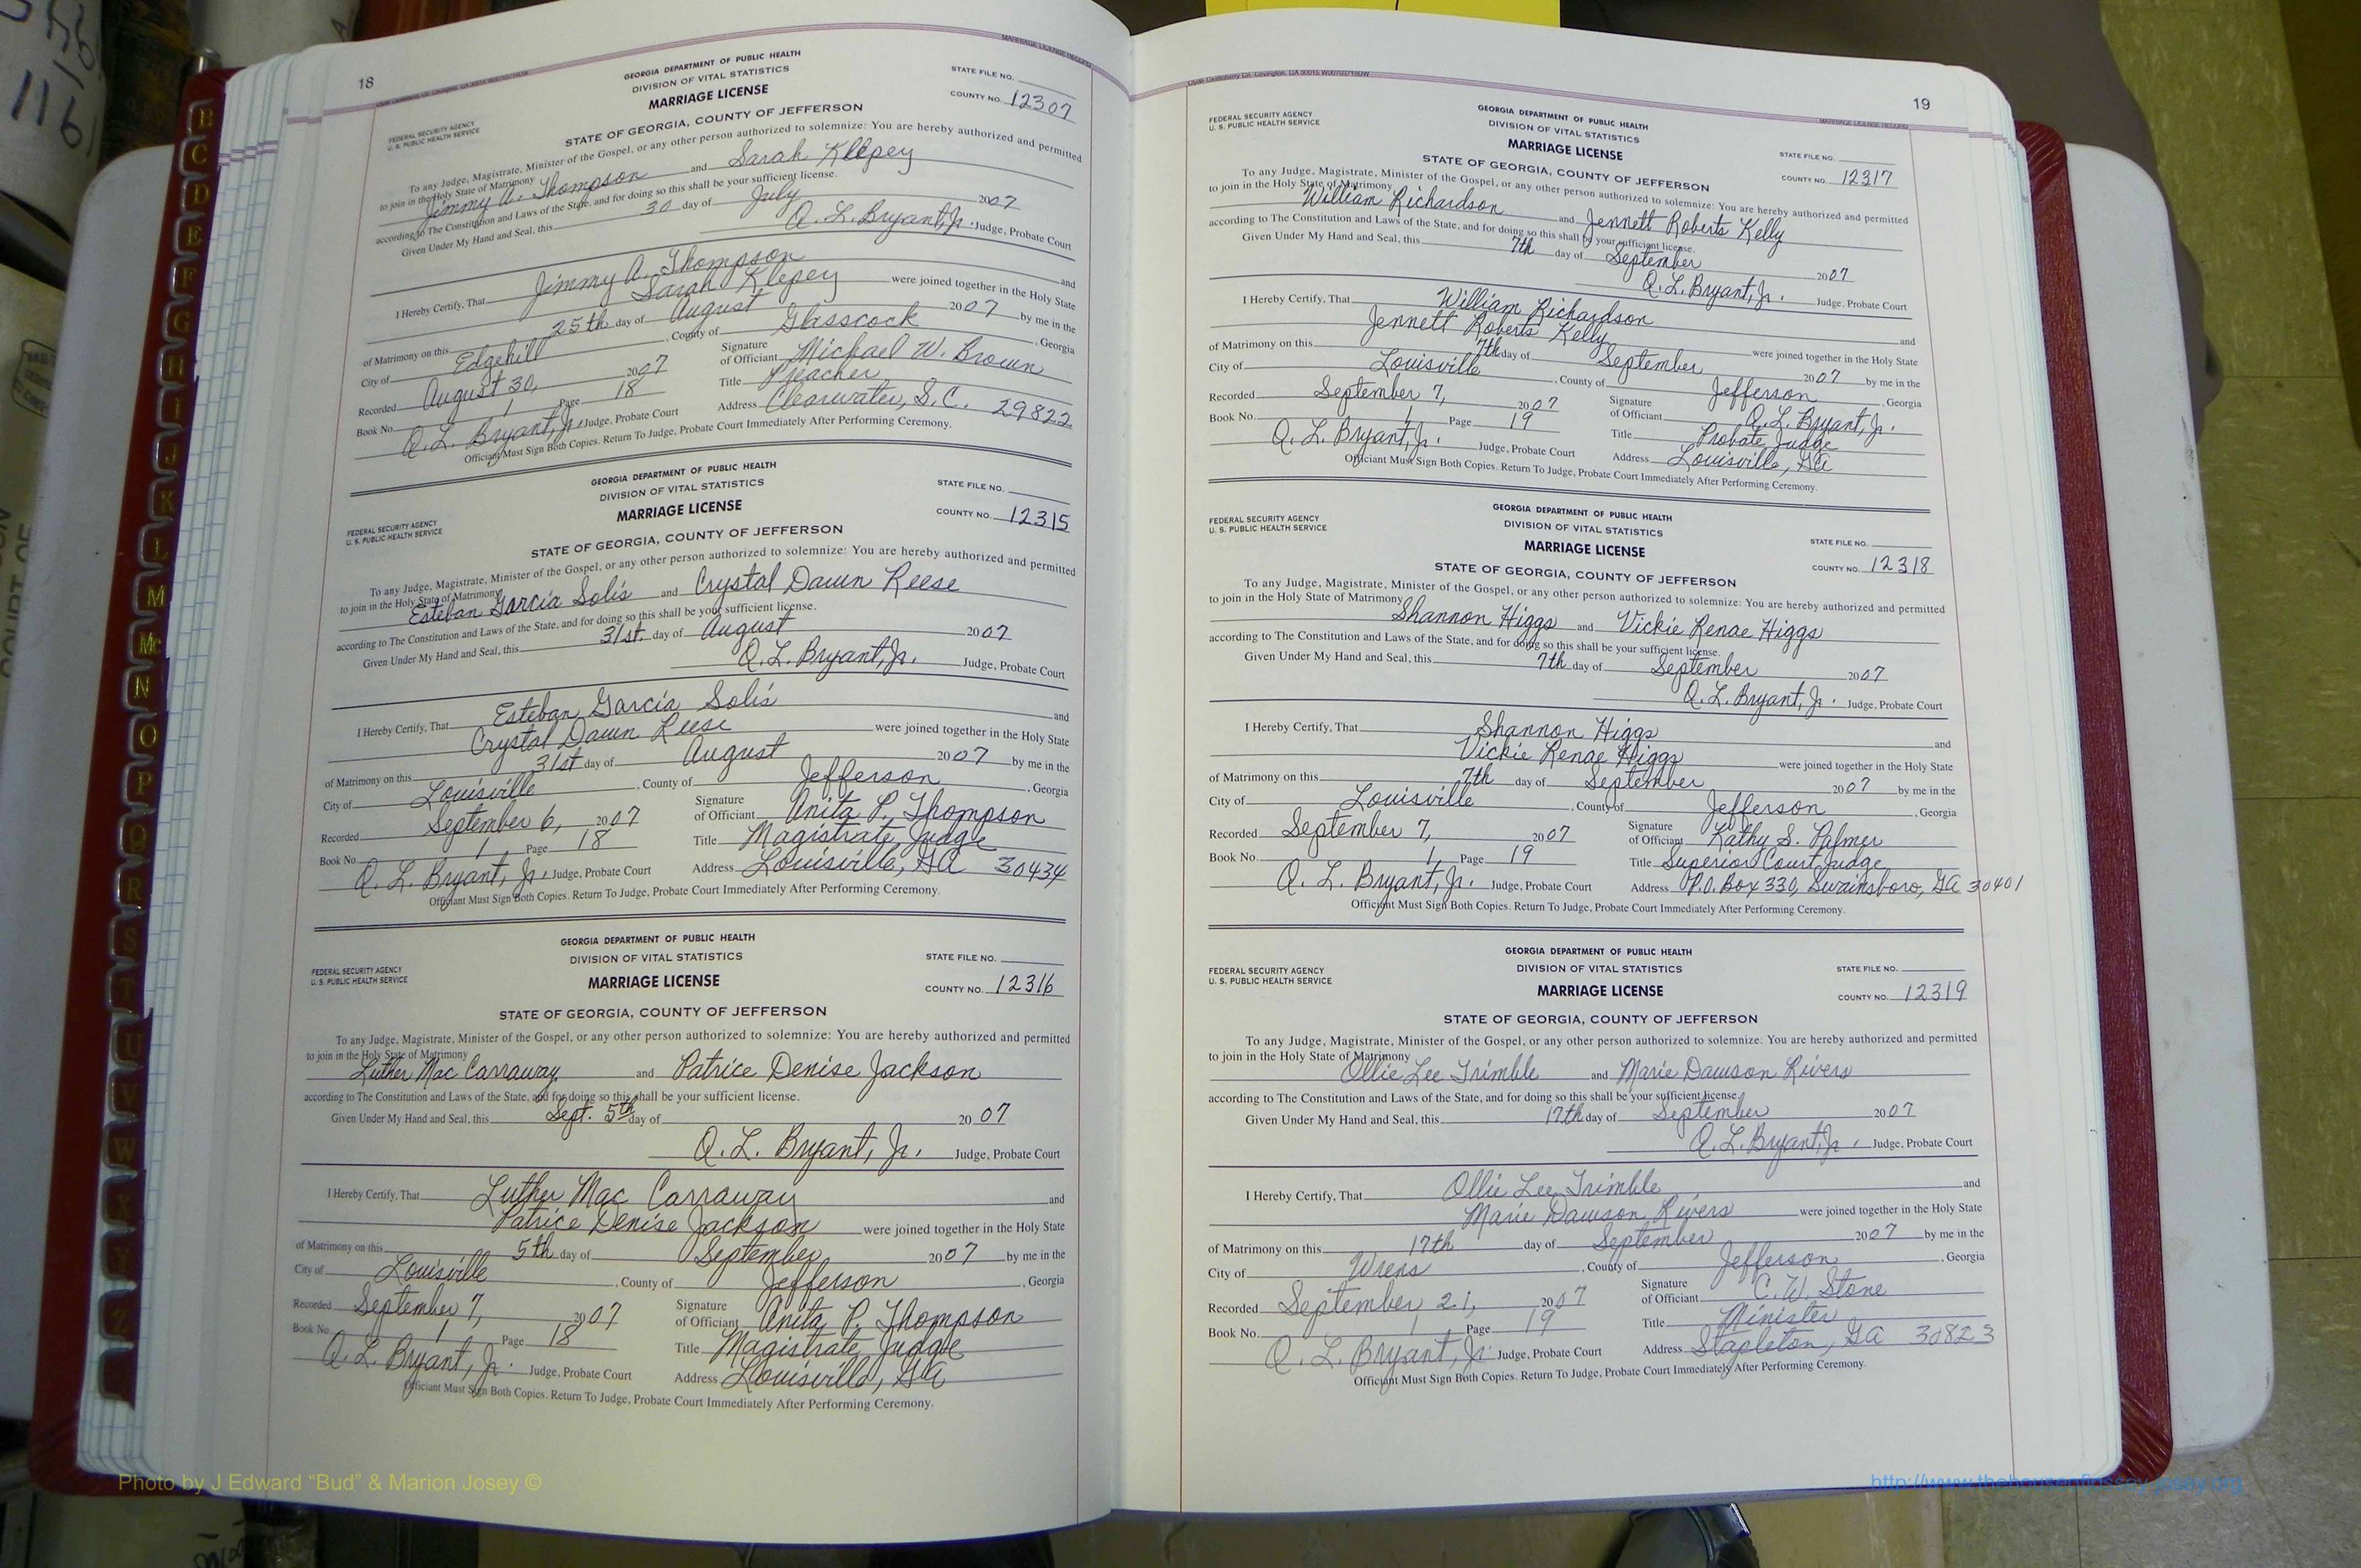 18
MARRIAGE LICENSE RECORD
GEORGIA DEPARTMENT OF PUBLIC HEALTH
DIVISION OF VITAL STATISTICS
MARRIAGE LICENSE
STATE OF GEORGIA, COUNTY OF JEFFERSON
FEDERAL SECURITY AGENCY
U. S. PUBLIC HEALTH SERVICE
STATE FILE NO.
COUNTY NO. 12307
To any Judge, Magistrate, Minister of the Gospel, or any other person authorized to solemnize: You are hereby authorized and permitted
to join in the Holy State of Matrimony
Jimmy A. Thompson and Sarah Klepey
according to The Constitution and Laws of the State, and for doing so this shall be your sufficient license.
Given Under My Hand and Seal, this 30 day of July 2007
Q. L. Bryant, Jr. Judge, Probate Court
I Hereby Certify, That Jimmy A. Thompson and
Sarah Klepey were joined together in the Holy State
of Matrimony on this 25th day of August 2007 by me in the
City of Edgehill, County of Glasscock, Georgia
Recorded August 30, 2007
Signature of Officiant Michael W. Brown
Book No. 1 Page 18
Title Preacher
Q. L. Bryant, Jr. Judge, Probate Court
Address Clearwater, S.C. 29822
Officiant Must Sign Both Copies. Return To Judge, Probate Court Immediately After Performing Ceremony.
GEORGIA DEPARTMENT OF PUBLIC HEALTH
DIVISION OF VITAL STATISTICS
MARRIAGE LICENSE
STATE OF GEORGIA, COUNTY OF JEFFERSON
FEDERAL SECURITY AGENCY
U. S. PUBLIC HEALTH SERVICE
STATE FILE NO.
COUNTY NO. 12315
To any Judge, Magistrate, Minister of the Gospel, or any other person authorized to solemnize: You are hereby authorized and permitted
to join in the Holy State of Matrimony
Esteban Garcia Solis and Crystal Dawn Reese
according to The Constitution and Laws of the State, and for doing so this shall be your sufficient license.
Given Under My Hand and Seal, this 31st day of August 2007
Q. L. Bryant, Jr. Judge, Probate Court
I Hereby Certify, That Esteban Garcia Solis and
Crystal Dawn Reese were joined together in the Holy State
of Matrimony on this 31st day of August 2007 by me in the
City of Louisville, County of Jefferson, Georgia
Recorded September 6, 2007
Signature of Officiant Anita P. Thompson
Book No. 1 Page 18
Title Magistrate Judge
Q. L. Bryant, Jr. Judge, Probate Court
Address Louisville, GA 30434
Officiant Must Sign Both Copies. Return To Judge, Probate Court Immediately After Performing Ceremony.
GEORGIA DEPARTMENT OF PUBLIC HEALTH
DIVISION OF VITAL STATISTICS
MARRIAGE LICENSE
STATE OF GEORGIA, COUNTY OF JEFFERSON
FEDERAL SECURITY AGENCY
U. S. PUBLIC HEALTH SERVICE
STATE FILE NO.
COUNTY NO. 12316
To any Judge, Magistrate, Minister of the Gospel, or any other person authorized to solemnize: You are hereby authorized and permitted
to join in the Holy State of Matrimony
Luther Mac Carraway and Patrice Denise Jackson
according to The Constitution and Laws of the State, and for doing so this shall be your sufficient license.
Given Under My Hand and Seal, this Sept. 5th day of 2007
Q. L. Bryant, Jr. Judge, Probate Court
I Hereby Certify, That Luther Mac Carraway and
Patrice Denise Jackson were joined together in the Holy State
of Matrimony on this 5th day of September 2007 by me in the
City of Louisville, County of Jefferson, Georgia
Recorded September 7, 2007
Signature of Officiant Anita P. Thompson
Book No. 1 Page 18
Title Magistrate Judge
Q. L. Bryant, Jr. Judge, Probate Court
Address Louisville, GA
Officiant Must Sign Both Copies. Return To Judge, Probate Court Immediately After Performing Ceremony.
19
MARRIAGE LICENSE RECORD
GEORGIA DEPARTMENT OF PUBLIC HEALTH
DIVISION OF VITAL STATISTICS
MARRIAGE LICENSE
STATE OF GEORGIA, COUNTY OF JEFFERSON
FEDERAL SECURITY AGENCY
U. S. PUBLIC HEALTH SERVICE
STATE FILE NO.
COUNTY NO. 12317
To any Judge, Magistrate, Minister of the Gospel, or any other person authorized to solemnize: You are hereby authorized and permitted
to join in the Holy State of Matrimony
William Richardson and Jennett Roberts Kelly
according to The Constitution and Laws of the State, and for doing so this shall be your sufficient license.
Given Under My Hand and Seal, this 7th day of September 2007
Q. L. Bryant, Jr. Judge, Probate Court
I Hereby Certify, That William Richardson and
Jennett Roberts Kelly were joined together in the Holy State
of Matrimony on this 7th day of September 2007 by me in the
City of Louisville, County of Jefferson, Georgia
Recorded September 7, 2007
Signature of Officiant Q. L. Bryant, Jr.
Book No. 1 Page 19
Title Probate Judge
Q. L. Bryant, Jr. Judge, Probate Court
Address Louisville, GA
Officiant Must Sign Both Copies. Return To Judge, Probate Court Immediately After Performing Ceremony.
GEORGIA DEPARTMENT OF PUBLIC HEALTH
DIVISION OF VITAL STATISTICS
MARRIAGE LICENSE
STATE OF GEORGIA, COUNTY OF JEFFERSON
FEDERAL SECURITY AGENCY
U. S. PUBLIC HEALTH SERVICE
STATE FILE NO.
COUNTY NO. 12318
To any Judge, Magistrate, Minister of the Gospel, or any other person authorized to solemnize: You are hereby authorized and permitted
to join in the Holy State of Matrimony
Shannon Higgs and Vickie Renae Higgs
according to The Constitution and Laws of the State, and for doing so this shall be your sufficient license.
Given Under My Hand and Seal, this 7th day of September 2007
Q. L. Bryant, Jr. Judge, Probate Court
I Hereby Certify, That Shannon Higgs and
Vickie Renae Higgs were joined together in the Holy State
of Matrimony on this 7th day of September 2007 by me in the
City of Louisville, County of Jefferson, Georgia
Recorded September 7, 2007
Signature of Officiant Kathy S. Palmer
Book No. 1 Page 19
Title Superior Court Judge
Q. L. Bryant, Jr. Judge, Probate Court
Address P.O. Box 330, Swainsboro, GA 30401
Officiant Must Sign Both Copies. Return To Judge, Probate Court Immediately After Performing Ceremony.
GEORGIA DEPARTMENT OF PUBLIC HEALTH
DIVISION OF VITAL STATISTICS
MARRIAGE LICENSE
STATE OF GEORGIA, COUNTY OF JEFFERSON
FEDERAL SECURITY AGENCY
U. S. PUBLIC HEALTH SERVICE
STATE FILE NO.
COUNTY NO. 12319
To any Judge, Magistrate, Minister of the Gospel, or any other person authorized to solemnize: You are hereby authorized and permitted
to join in the Holy State of Matrimony
Ollie Lee Trimble and Marie Dawson Rivers
according to The Constitution and Laws of the State, and for doing so this shall be your sufficient license.
Given Under My Hand and Seal, this 17th day of September 2007
Q. L. Bryant, Jr. Judge, Probate Court
I Hereby Certify, That Ollie Lee Trimble and
Marie Dawson Rivers were joined together in the Holy State
of Matrimony on this 17th day of September 2007 by me in the
City of Wrens, County of Jefferson, Georgia
Recorded September 21, 2007
Signature of Officiant C. W. Stone
Book No. 1 Page 19
Title Minister
Q. L. Bryant, Jr. Judge, Probate Court
Address Stapleton, GA 30823
Officiant Must Sign Both Copies. Return To Judge, Probate Court Immediately After Performing Ceremony.
B
C
D
E
F
G
H
I
J
K
L
M
Mc
N
O
P
Q
R
S
T
U
V
W
X
Y
Z
Photo by J Edward “Bud” & Marion Josey ©